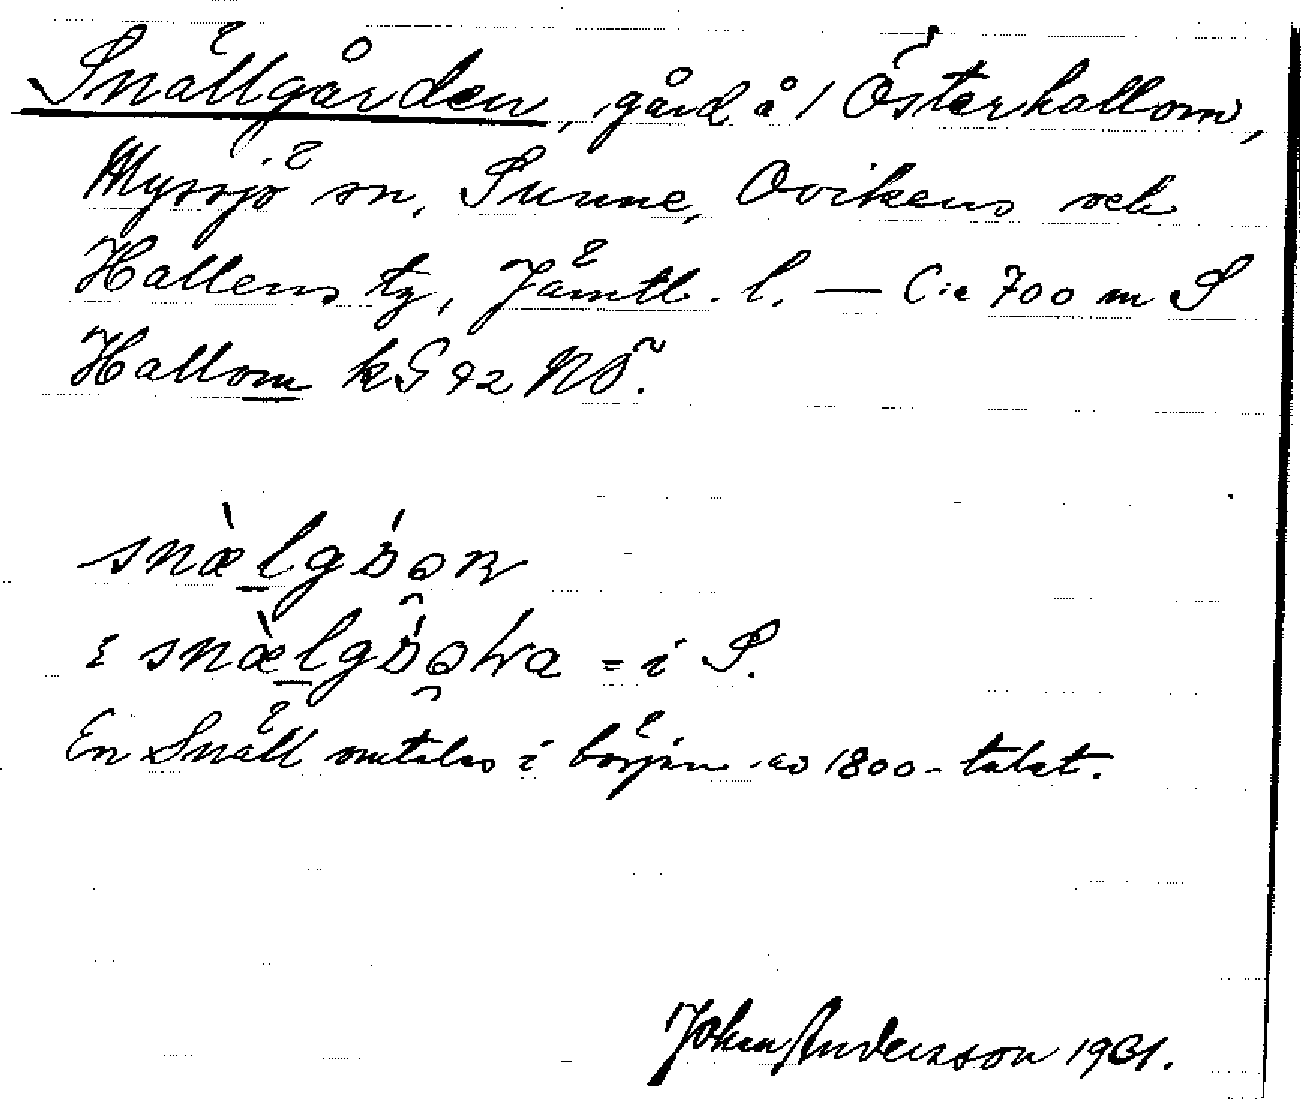 Snällgården, gård å 1 Österhallom,
Myssjö sn, Sunne, Ovikens och
Hallens tg, Jämtl. l. — C:a 700 m S
Hallom kG 92 NÖ.
snæ̀lgɒ́ən
i snæ̀lgɒ́əɴa = i S.
En Snäll omtalas i början av 1800-talat.
John Andersson 1931.